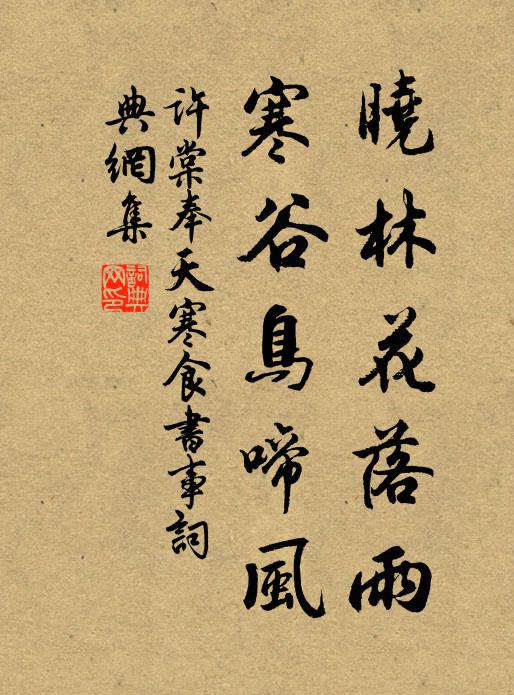 曉林花落雨
寒谷鳥啼風
許棠奉天寒食書事詞
典網集
詞典
网印